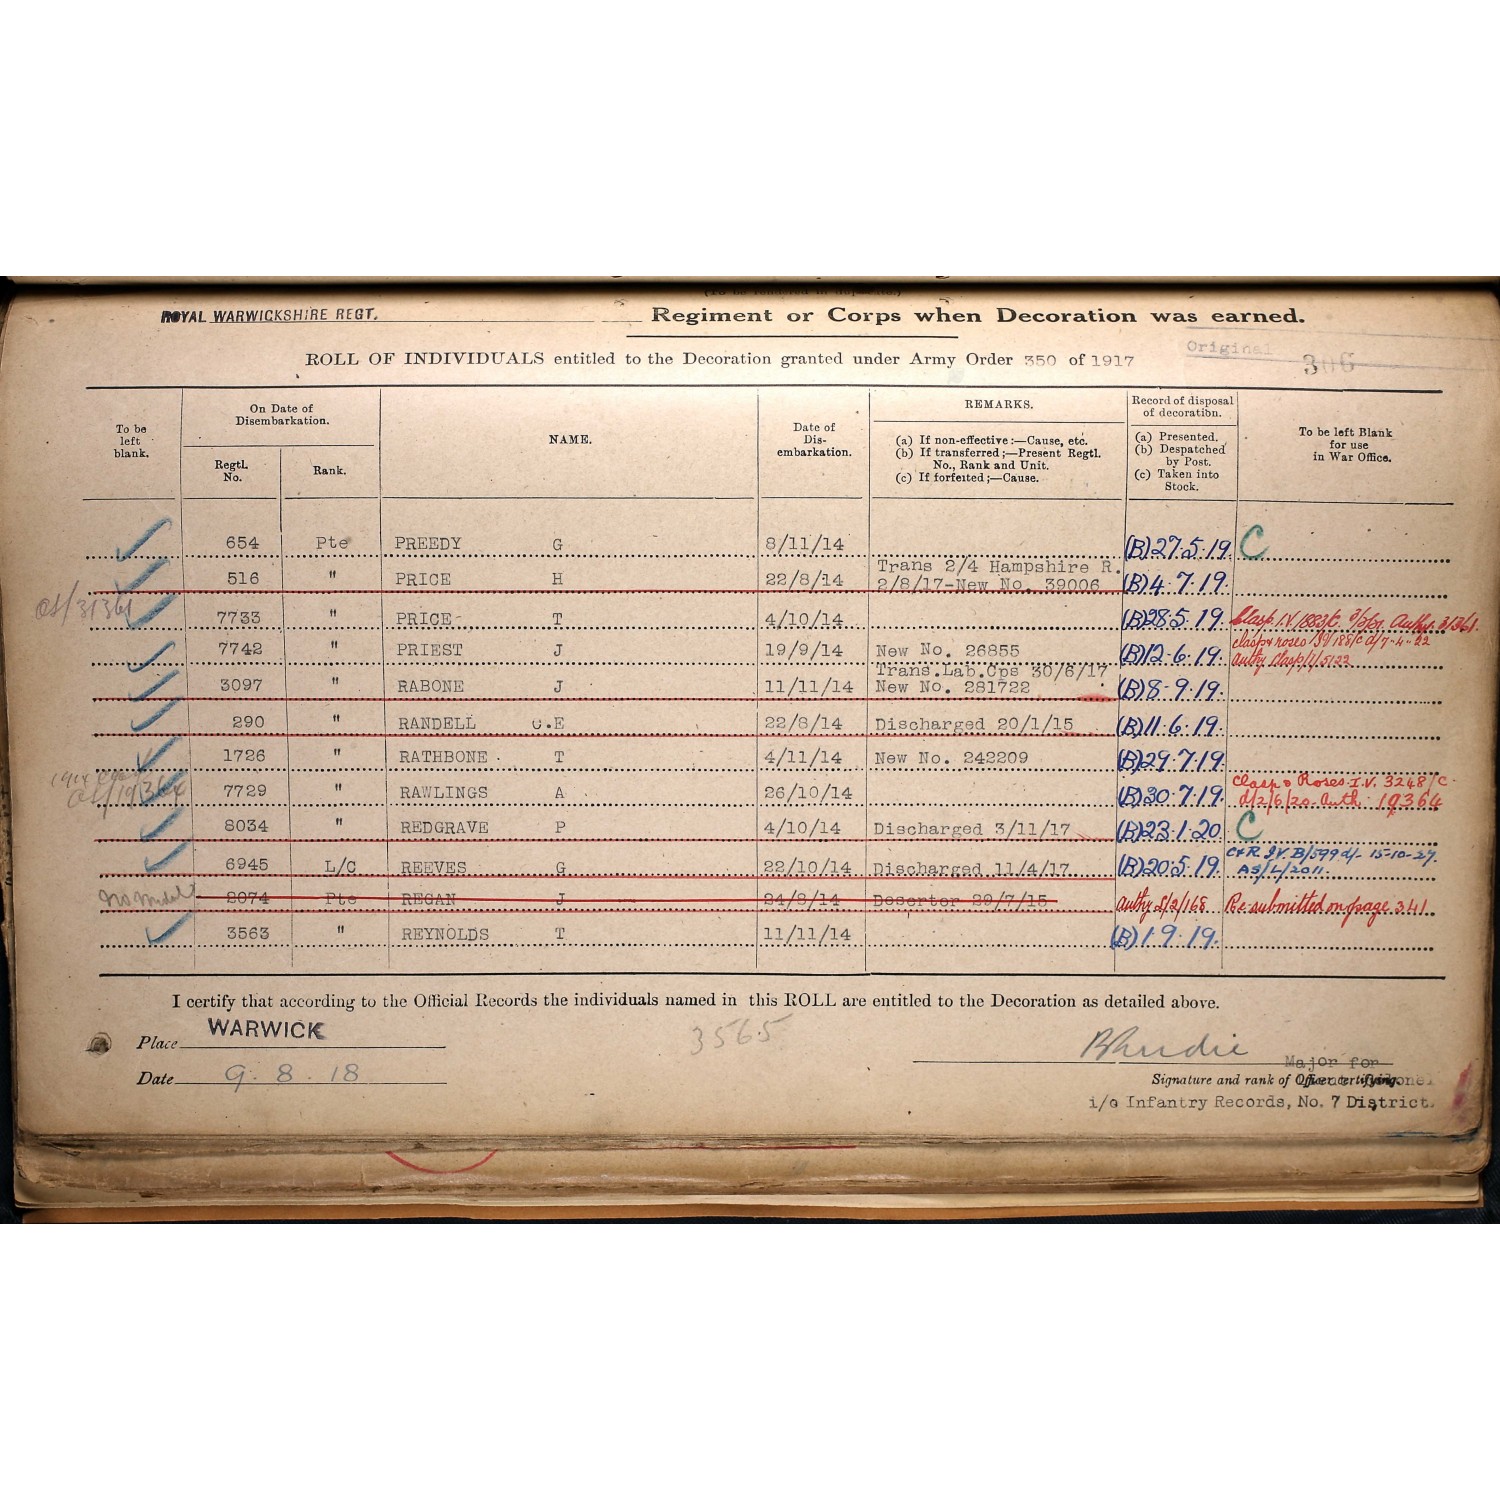 ROYAL WARWICKSHIRE REGT. Regiment or Corps when Decoration was earned.
Original
ROLL OF INDIVIDUALS entitled to the Decoration granted under Army Order 350 of 1917
306
To be left blank.
On Date of Disembarkation.
Regtl. No.
Rank.
NAME.
Date of Dis-embarkation.
REMARKS.
(a) If non-effective:—Cause, etc.
(b) If transferred;—Present Regtl. No., Rank and Unit.
(c) If forfeited;—Cause.
Record of disposal of decoration.
(a) Presented.
(b) Despatched by Post.
(c) Taken into Stock.
To be left Blank for use in War Office.
654 Pte PREEDY G 8/11/14 (B) 27.5.19. C
516 " PRICE H 22/8/14 Trans 2/4 Hampshire R. 2/8/17-New No. 39006 (B) 4.7.19.
7733 " PRICE T 4/10/14 (B) 28.5.19. Clasp I.V.
7742 " PRIEST J 19/9/14 New No. 26855 (B) 12.6.19. clasp & roses
3097 " RABONE J 11/11/14 Trans.Lab.Cps 30/6/17 New No. 281722 (B) 8-9.19.
290 " RANDELL C.E 22/8/14 Discharged 20/1/15 (B) 11.6.19.
1726 " RATHBONE T 4/11/14 New No. 242209 (B) 29.7.19.
7729 " RAWLINGS A 26/10/14 (B) 30.7.19. Clasp & Roses I.V. 3248/C d/2/6/20. Auth: 19364
8034 " REDGRAVE P 4/10/14 Discharged 3/11/17 (B) 23.1.20. C
6945 L/C REEVES G 22/10/14 Discharged 11/4/17 (B) 20.5.19. C&R I.V. B/599 d/- 15-10-27. AS/L/2011.
No medal 2074 Pte REGAN J 24/8/14 Deserter 29/7/15 Authy S/2/168 Re-submitted on page 341
3563 " REYNOLDS T 11/11/14 (B) 1.9.19.
I certify that according to the Official Records the individuals named in this ROLL are entitled to the Decoration as detailed above.
Place WARWICK
3565
Date 9.8.18
Major for
Signature and rank of Officer certifying.
i/c Infantry Records, No. 7 District.